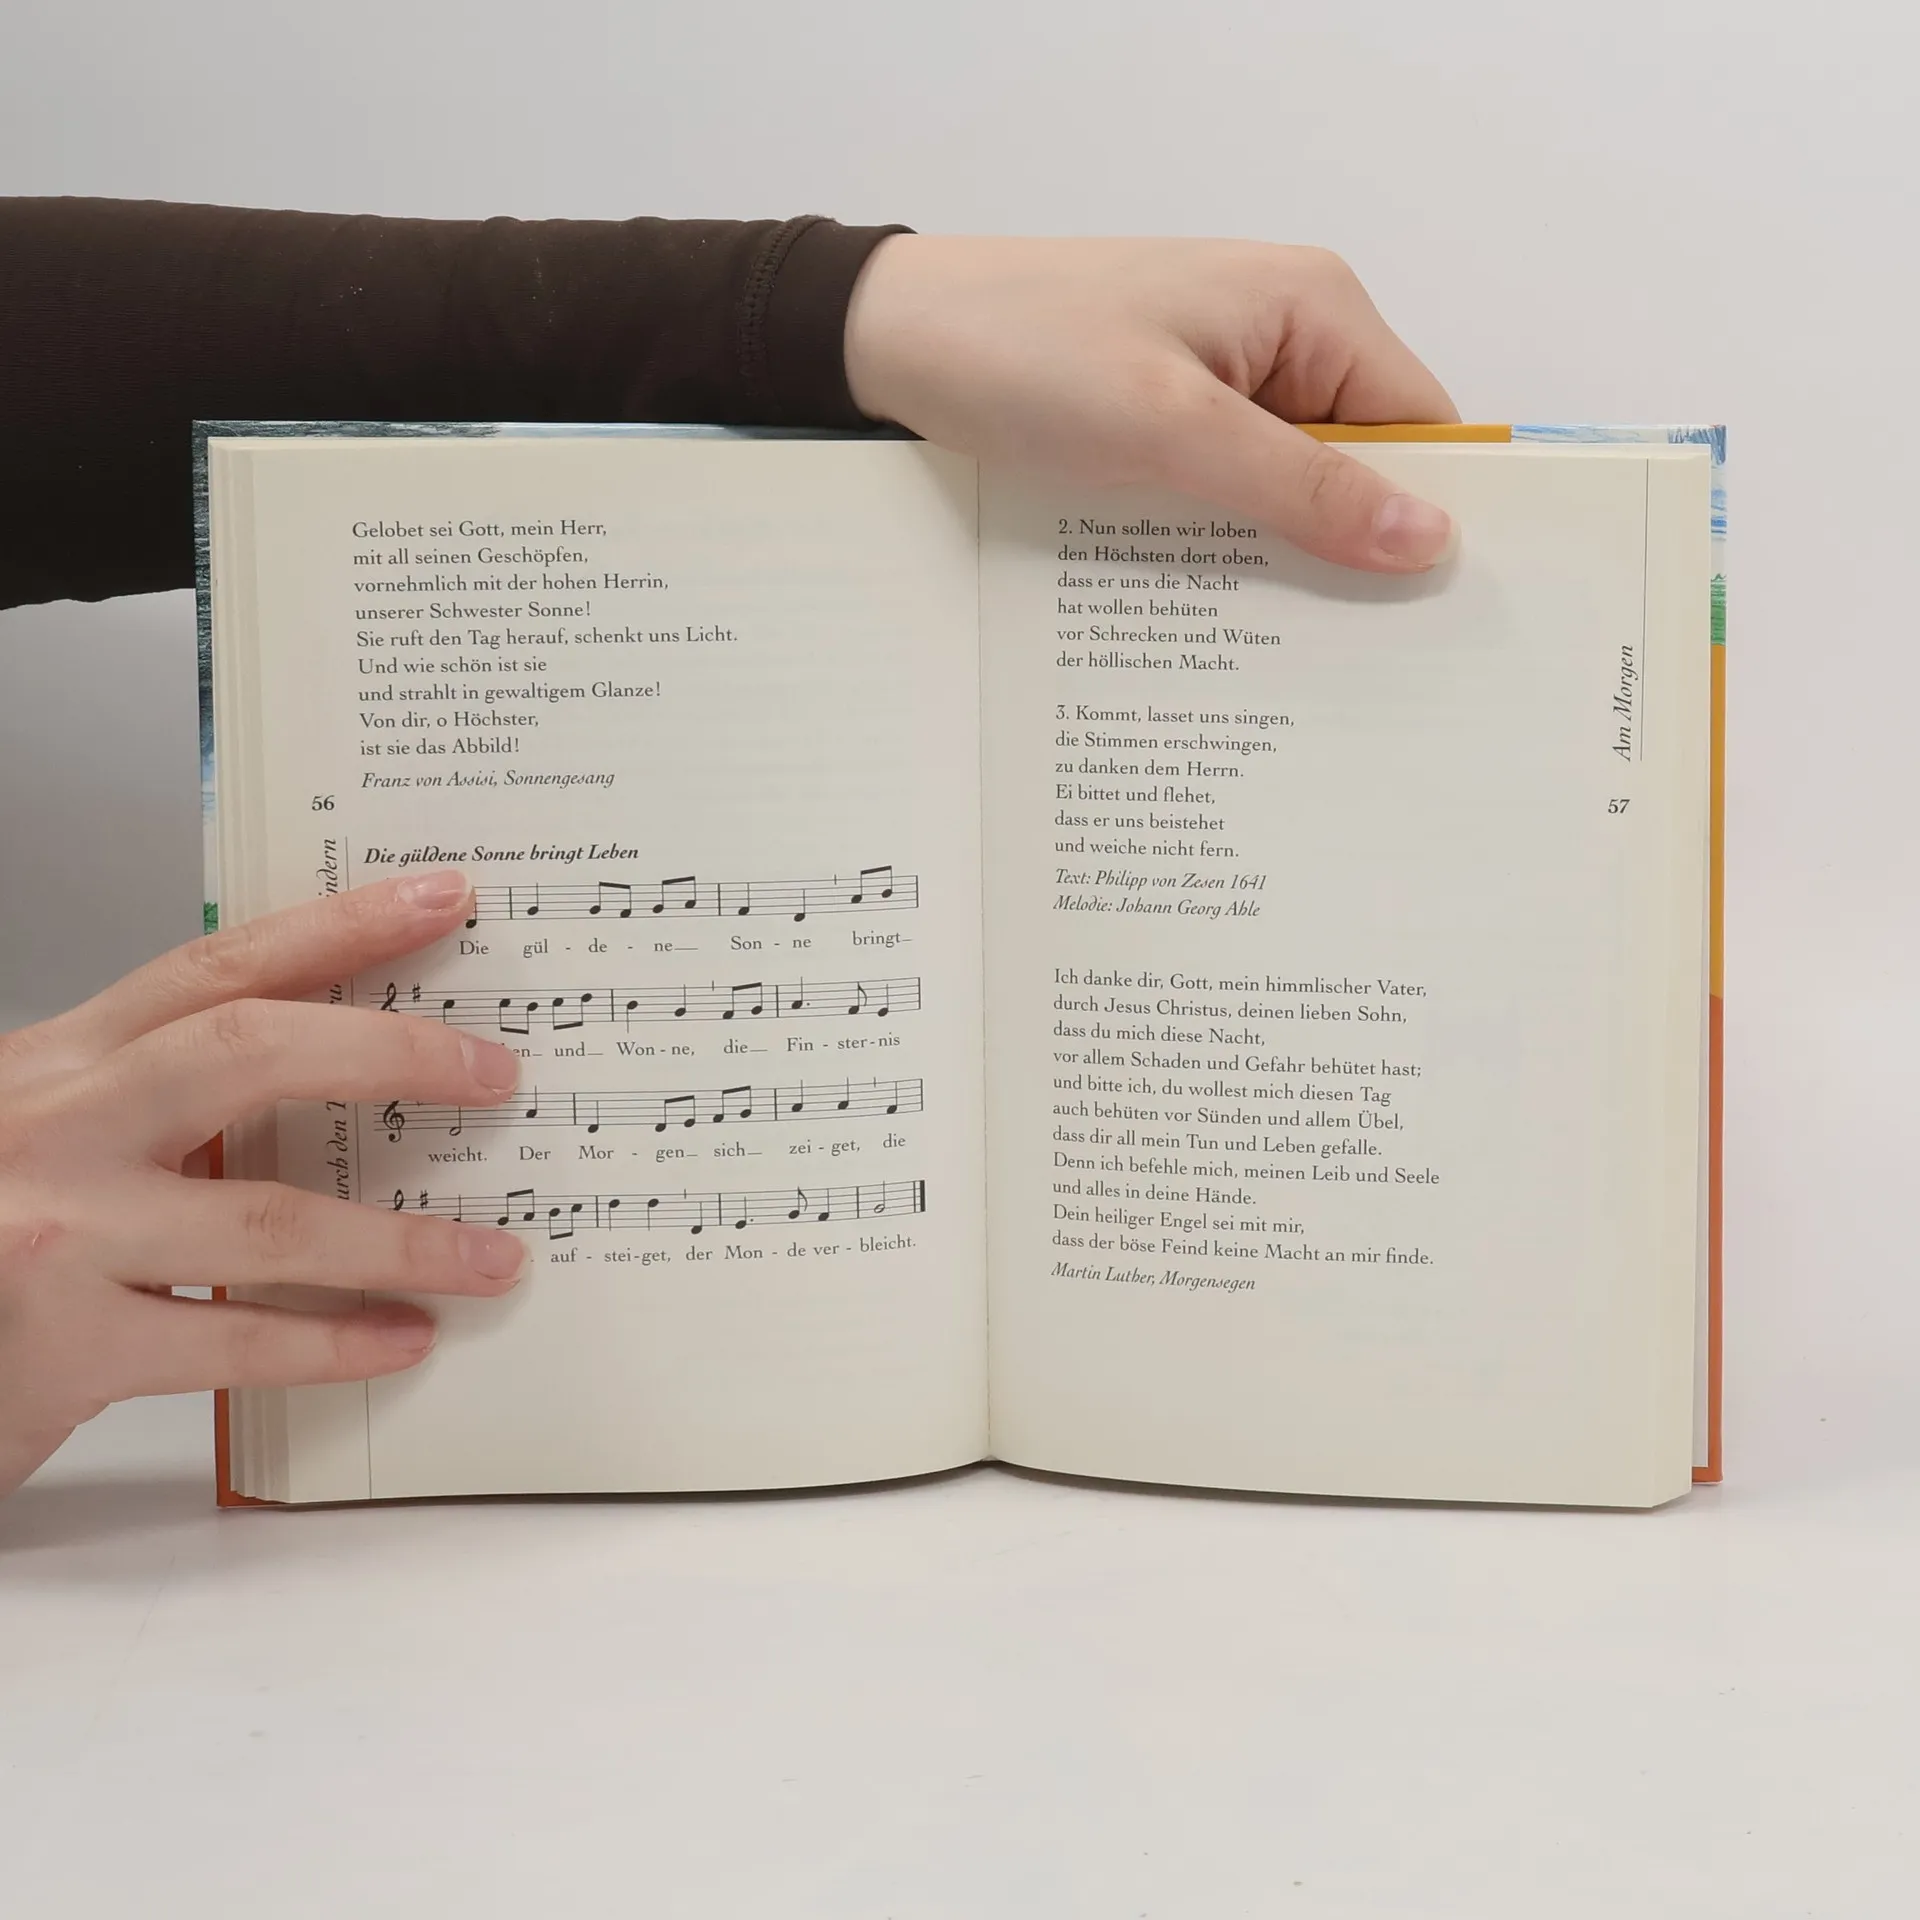 Gelobet sei Gott, mein Herr,
mit all seinen Geschöpfen,
vornehmlich mit der hohen Herrin,
unserer Schwester Sonne!
Sie ruft den Tag herauf, schenkt uns Licht.
Und wie schön ist sie
und strahlt in gewaltigem Glanze!
Von dir, o Höchster,
ist sie das Abbild!
Franz von Assisi, Sonnengesang
56
Die güldene Sonne bringt Leben
Die gül - de - ne Son - ne bringt
und Won - ne, die Fin - ster - nis
weicht. Der Mor - gen sich zei - get, die
auf - stei - get, der Mon - de ver - bleicht.
2. Nun sollen wir loben
den Höchsten dort oben,
dass er uns die Nacht
hat wollen behüten
vor Schrecken und Wüten
der höllischen Macht.
3. Kommt, lasset uns singen,
die Stimmen erschwingen,
zu danken dem Herrn.
Ei bittet und flehet,
dass er uns beistehet
und weiche nicht fern.
Text: Philipp von Zesen 1641
Melodie: Johann Georg Ahle
Ich danke dir, Gott, mein himmlischer Vater,
durch Jesus Christus, deinen lieben Sohn,
dass du mich diese Nacht,
vor allem Schaden und Gefahr behütet hast;
und bitte ich, du wollest mich diesen Tag
auch behüten vor Sünden und allem Übel,
dass dir all mein Tun und Leben gefalle.
Denn ich befehle mich, meinen Leib und Seele
und alles in deine Hände.
Dein heiliger Engel sei mit mir,
dass der böse Feind keine Macht an mir finde.
Martin Luther, Morgensegen
Am Morgen
57